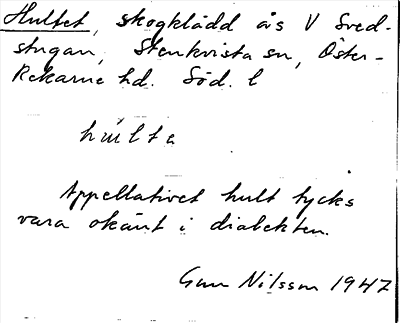 Hultet, skogklädd ås V Sved-
stugan, Stenkvista sn, Öster-
Rekarne hd. Söd. l
húlta
Appellativet hult tycks
vara okänt i dialekten.
Gun Nilsson 1947